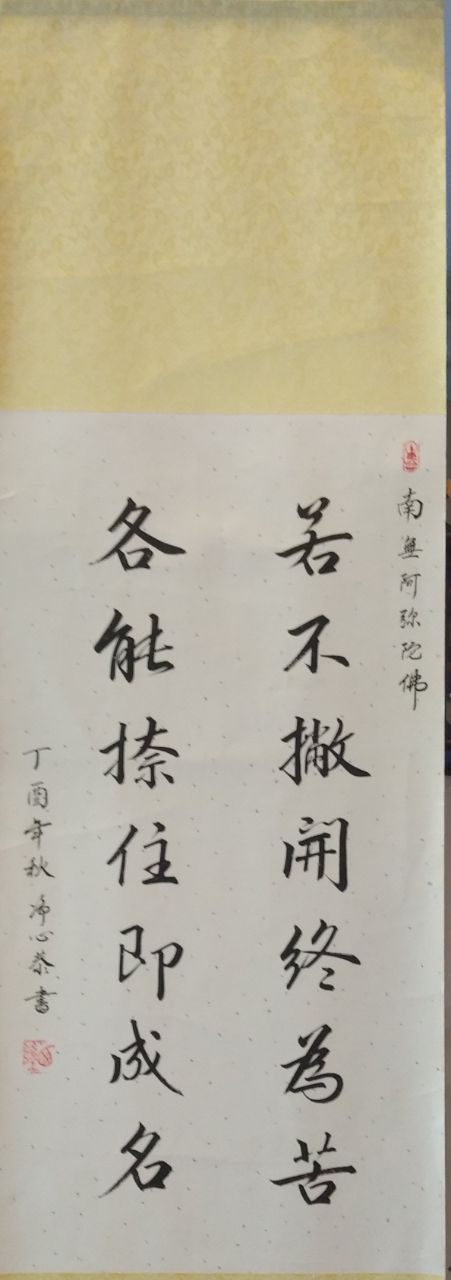 南無阿弥陀佛
若不撇開終為苦
各能捺住即成名
丁酉年秋 净心恭書